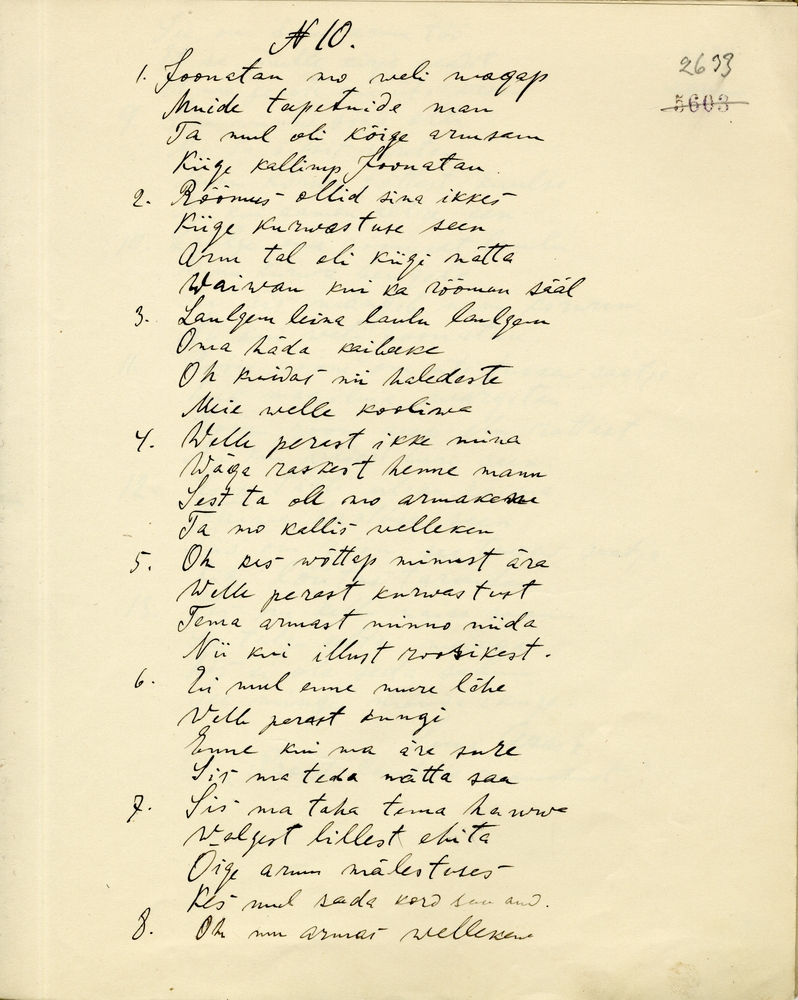 № 10.
2693
5603
1. Joonatan mo weli magap
Muide tapetuide man
Ta mul oli kõige armsam
Kiige kallimp Joonatan.
2. Rõõmus ollid sina ikkes
Kiige kurwastuse seen
Arm tal oli kiigi nätta
Waiwan kui ka rõõmun sääl
3. Laulgem leina laulu laulgem
Oma häda kaibake
Oh kuidas nii haledaste
Meie welle kooliwa
4. Welle perast ikke mina
Wäga raskest henne mann
Sest ta olli mo armakene
Ta mo kallis velleken
5. Oh kes wõttap minust ära
Welle perast kurwastust
Tema armast minno niida
Nii kui illust roosikest.
6. Ei mul enne mure lähe
Velle perast kungi
Enne kui ma äre sure
Sis ma teda nätta saa
7. Sis ma taha tema hauwa
Valgest lillest ehita
Õige armu mälestuses
Kes mul sada kord saa and.
8. Oh mu armas welleken